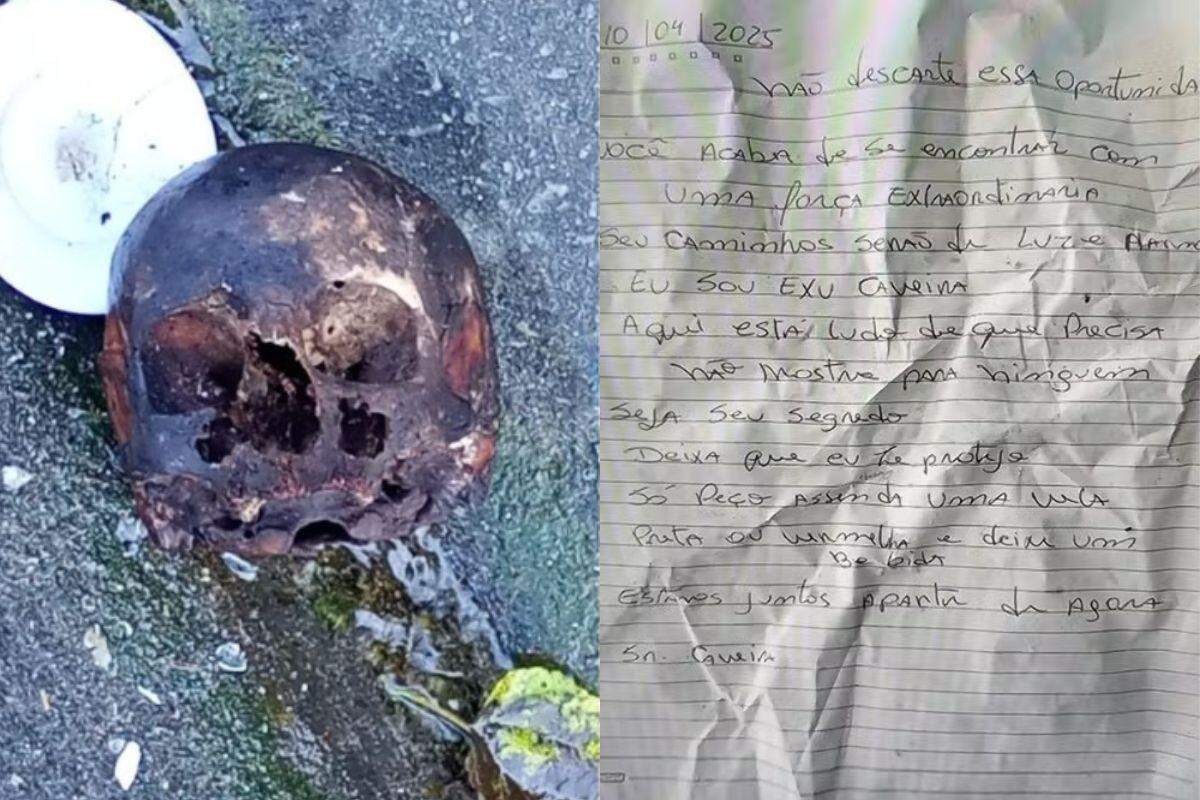 10 / 04 / 2025
NÃO descarte essa Oportunida
você ACABA de se encontrar com
UMA força EXtraordinaria
Seu CAmimhos serão de Luz e
EU SOU EXU CAVEIRA
Aqui está tudo de que Precisa
NÃO Mostre para ninguem
SejA Seu segredo
Deixa que eu te proteja
Só Peço Assenda UMA vela
Preta ou vermelha e deixe um
Bebida
Estamos juntos Apartir de Agora
Sr. Caveira